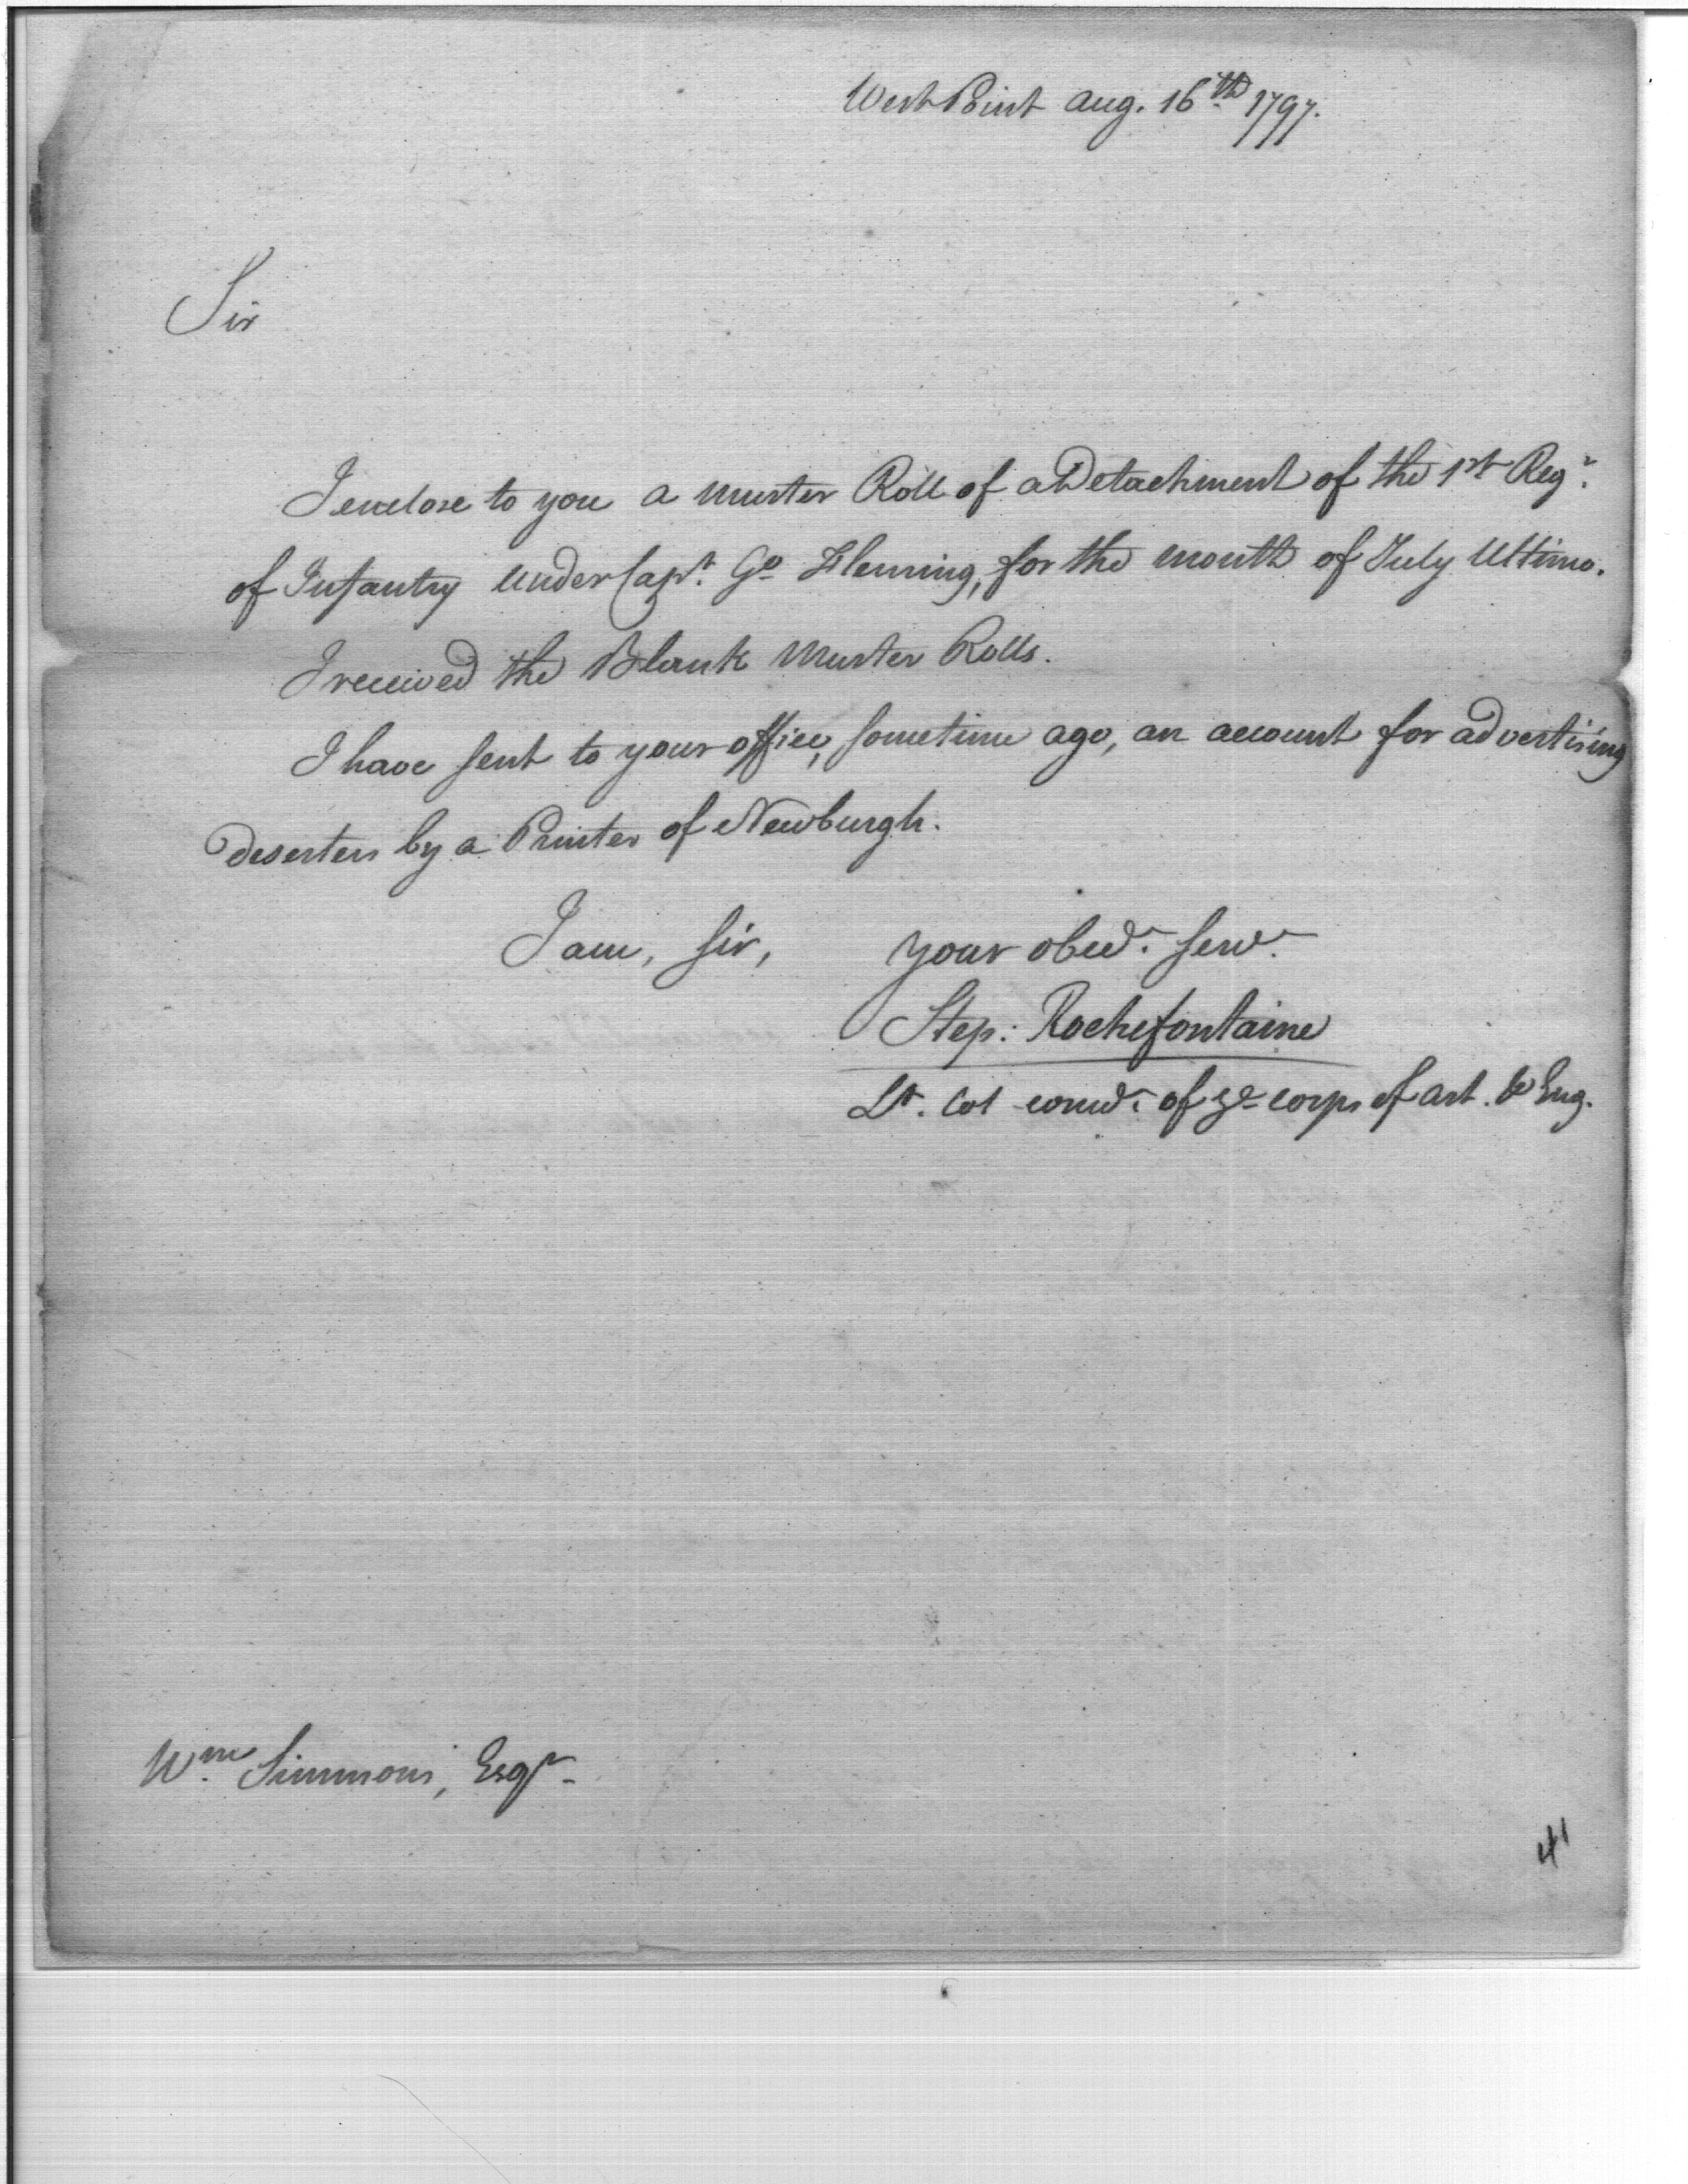 West Point Aug. 16th 1797.
Sir
I enclose to you a Muster Roll of a Detachment of the 1st Regr.
of Infantry under Capt. Go Fleming, for the month of July Ultimo.
I received the Blank Muster Rolls.
I have sent to your office, sometime ago, an account for advertising
deserters by a Printer of Newburgh.
I am, sir, your obedt. servt.
Step: Rochefontaine
Lt. Col comdt. of ye corps of Art. & Eng.
Wm. Simmons, Esqr.
41